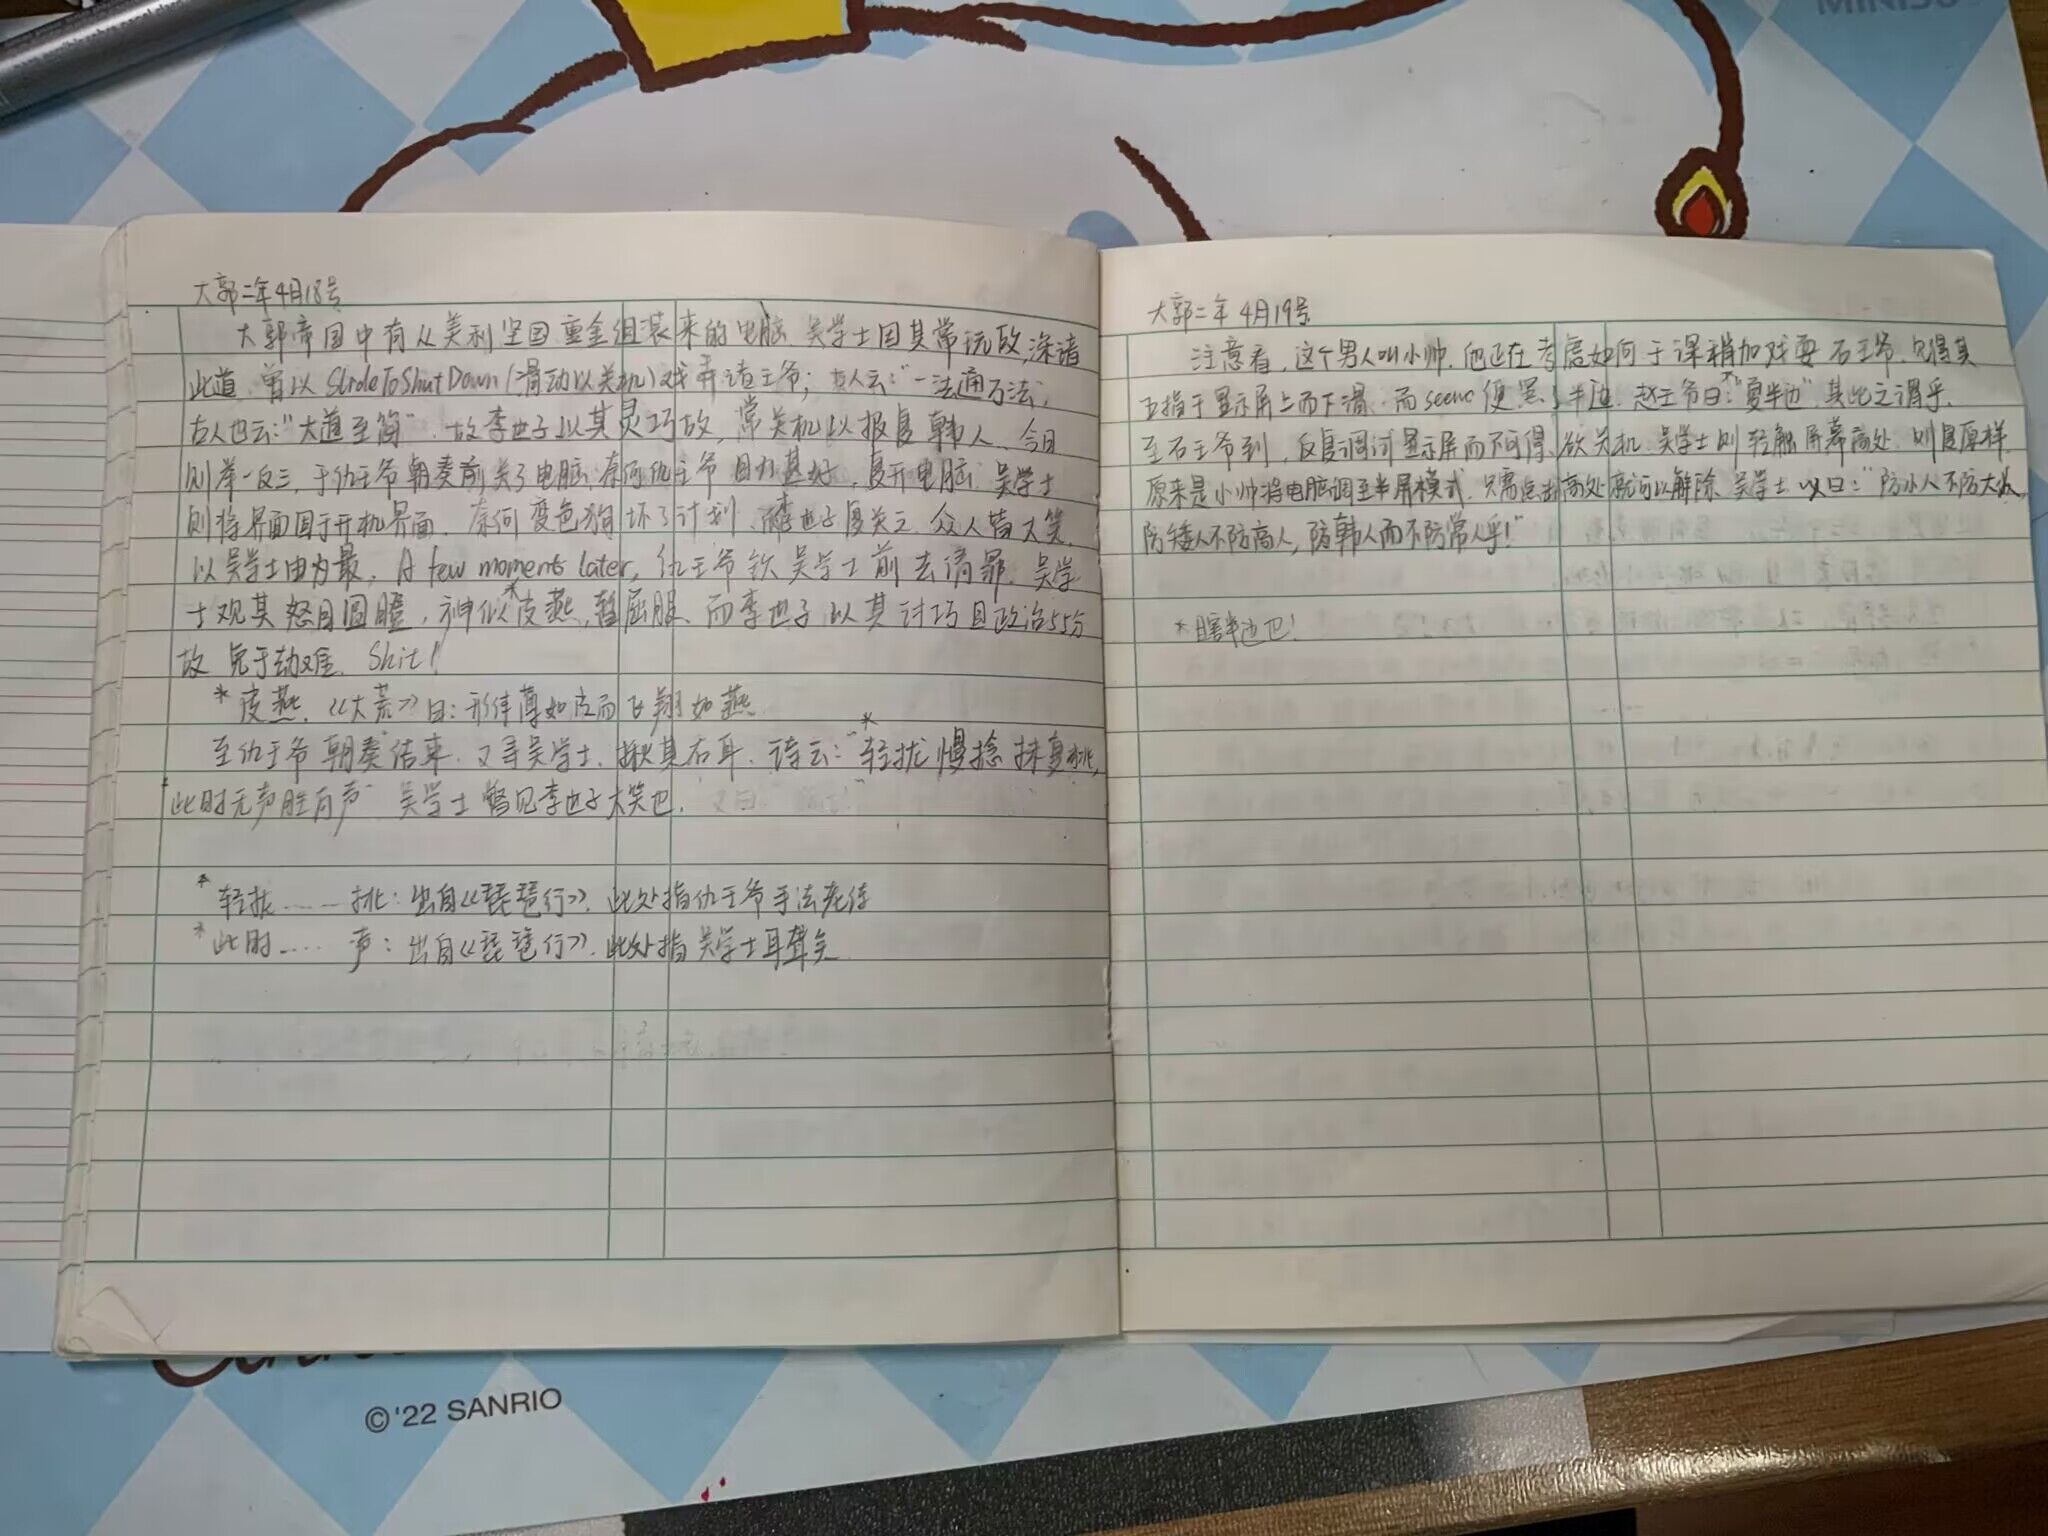 MINISO
大郭二年4月18号
大郭帝国中有从美利坚国重金组装来的电脑 吴学士因其常玩故,深谙
此道,曾以SlideToShutDown(滑动以关机)戏弄诸王爷;古人云:"一法通万法;
古人也云:"大道至简",故李世子以其灵巧故,常关机以报复韩人,今日
则举一反三,于仇王爷朝奏前关了电脑,奈何仇王爷目力甚好,复开电脑,吴学士
则将界面固于开机界面,奈何变色狗坏了计划,而李世子复关之,众人皆大笑,
以吴学士由为最,A few moments later,仇王爷钦吴学士前去请罪,吴学
士观其怒目圆瞪,神似*皮燕,暂屈服,而李世子以其讨巧且政治55分
故 免于劫难. Shit!
*皮燕,《大荒》曰:形体薄如皮而飞翔如燕
至仇王爷朝奏结束,又寻吴学士,揪其右耳,诗云:"*轻拢慢捻抹复挑,
*此时无声胜有声" 吴学士瞥见李世子大笑也.
*轻拢……挑:出自《琵琶行》,此处指仇王爷手法老练
*此时…… 声:出自《琵琶行》,此处指吴学士耳聋矣
大郭二年4月19号
注意看,这个男人叫小帅,他正在考虑如何于课稍加戏耍石王爷,只得其
五指于显示屏上而下滑,而 便黑了半边,赵王爷曰:"*夏半边",其此之谓乎,
至石王爷到,反复调试显示屏而不可得,欲关机,吴学士则轻触屏幕高处,则复原样,
原来是小帅将电脑调至半屏模式,只需点击高处就可以解除,吴学士 曰:"防小人不防大人,
防矮人不防高人,防韩人而不防常人乎!"
*瞎半边也!
©'22 SANRIO